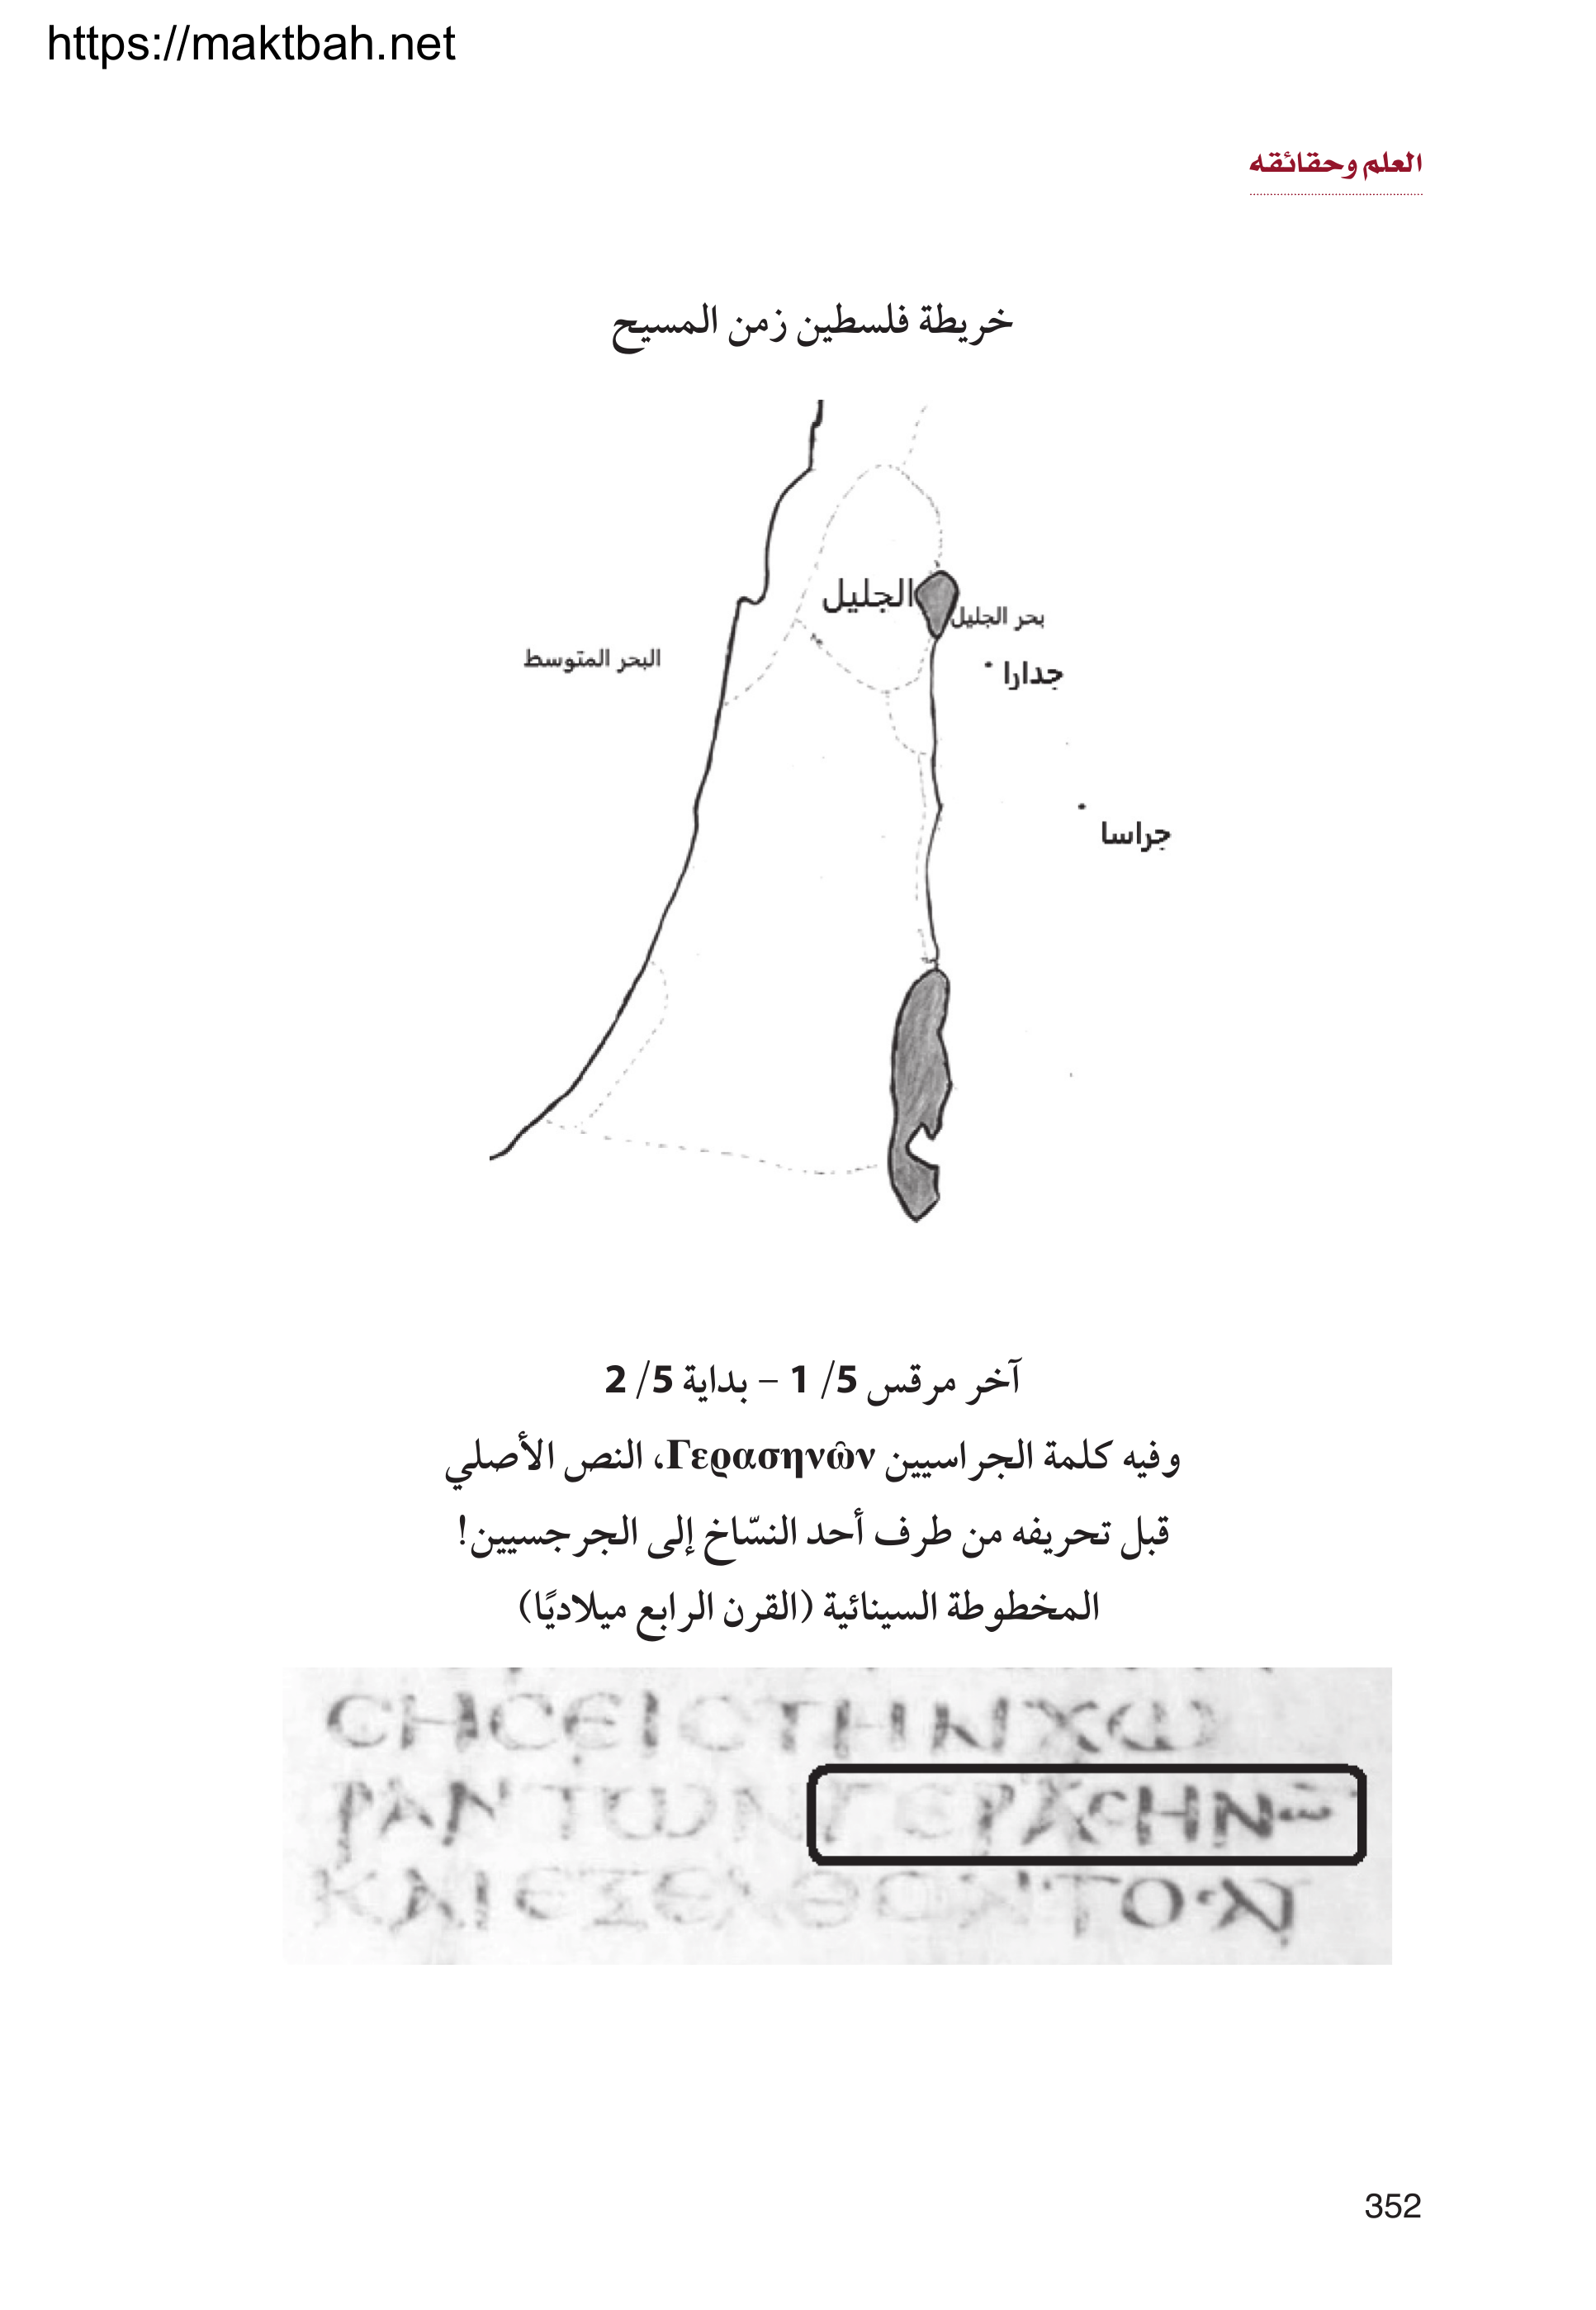 https://maktbah.net
العلم وحقائقه
خريطة فلسطين زمن المسيح
الجليل
بحر الجليل
البحر المتوسط
جدارا
جراسا
آخر مرقس 5/ 1 – بداية 5/ 2
وفيه كلمة الجراسيين Γερασηνῶν، النص الأصلي
قبل تحريفه من طرف أحد النسّاخ إلى الجرجسيين!
المخطوطة السينائية (القرن الرابع ميلاديًا)
CHCЄICTHNXⲰ
PANTⲰNΓЄPACHNⲰ̅
KAIЄΞЄΛΘONTOAY
352